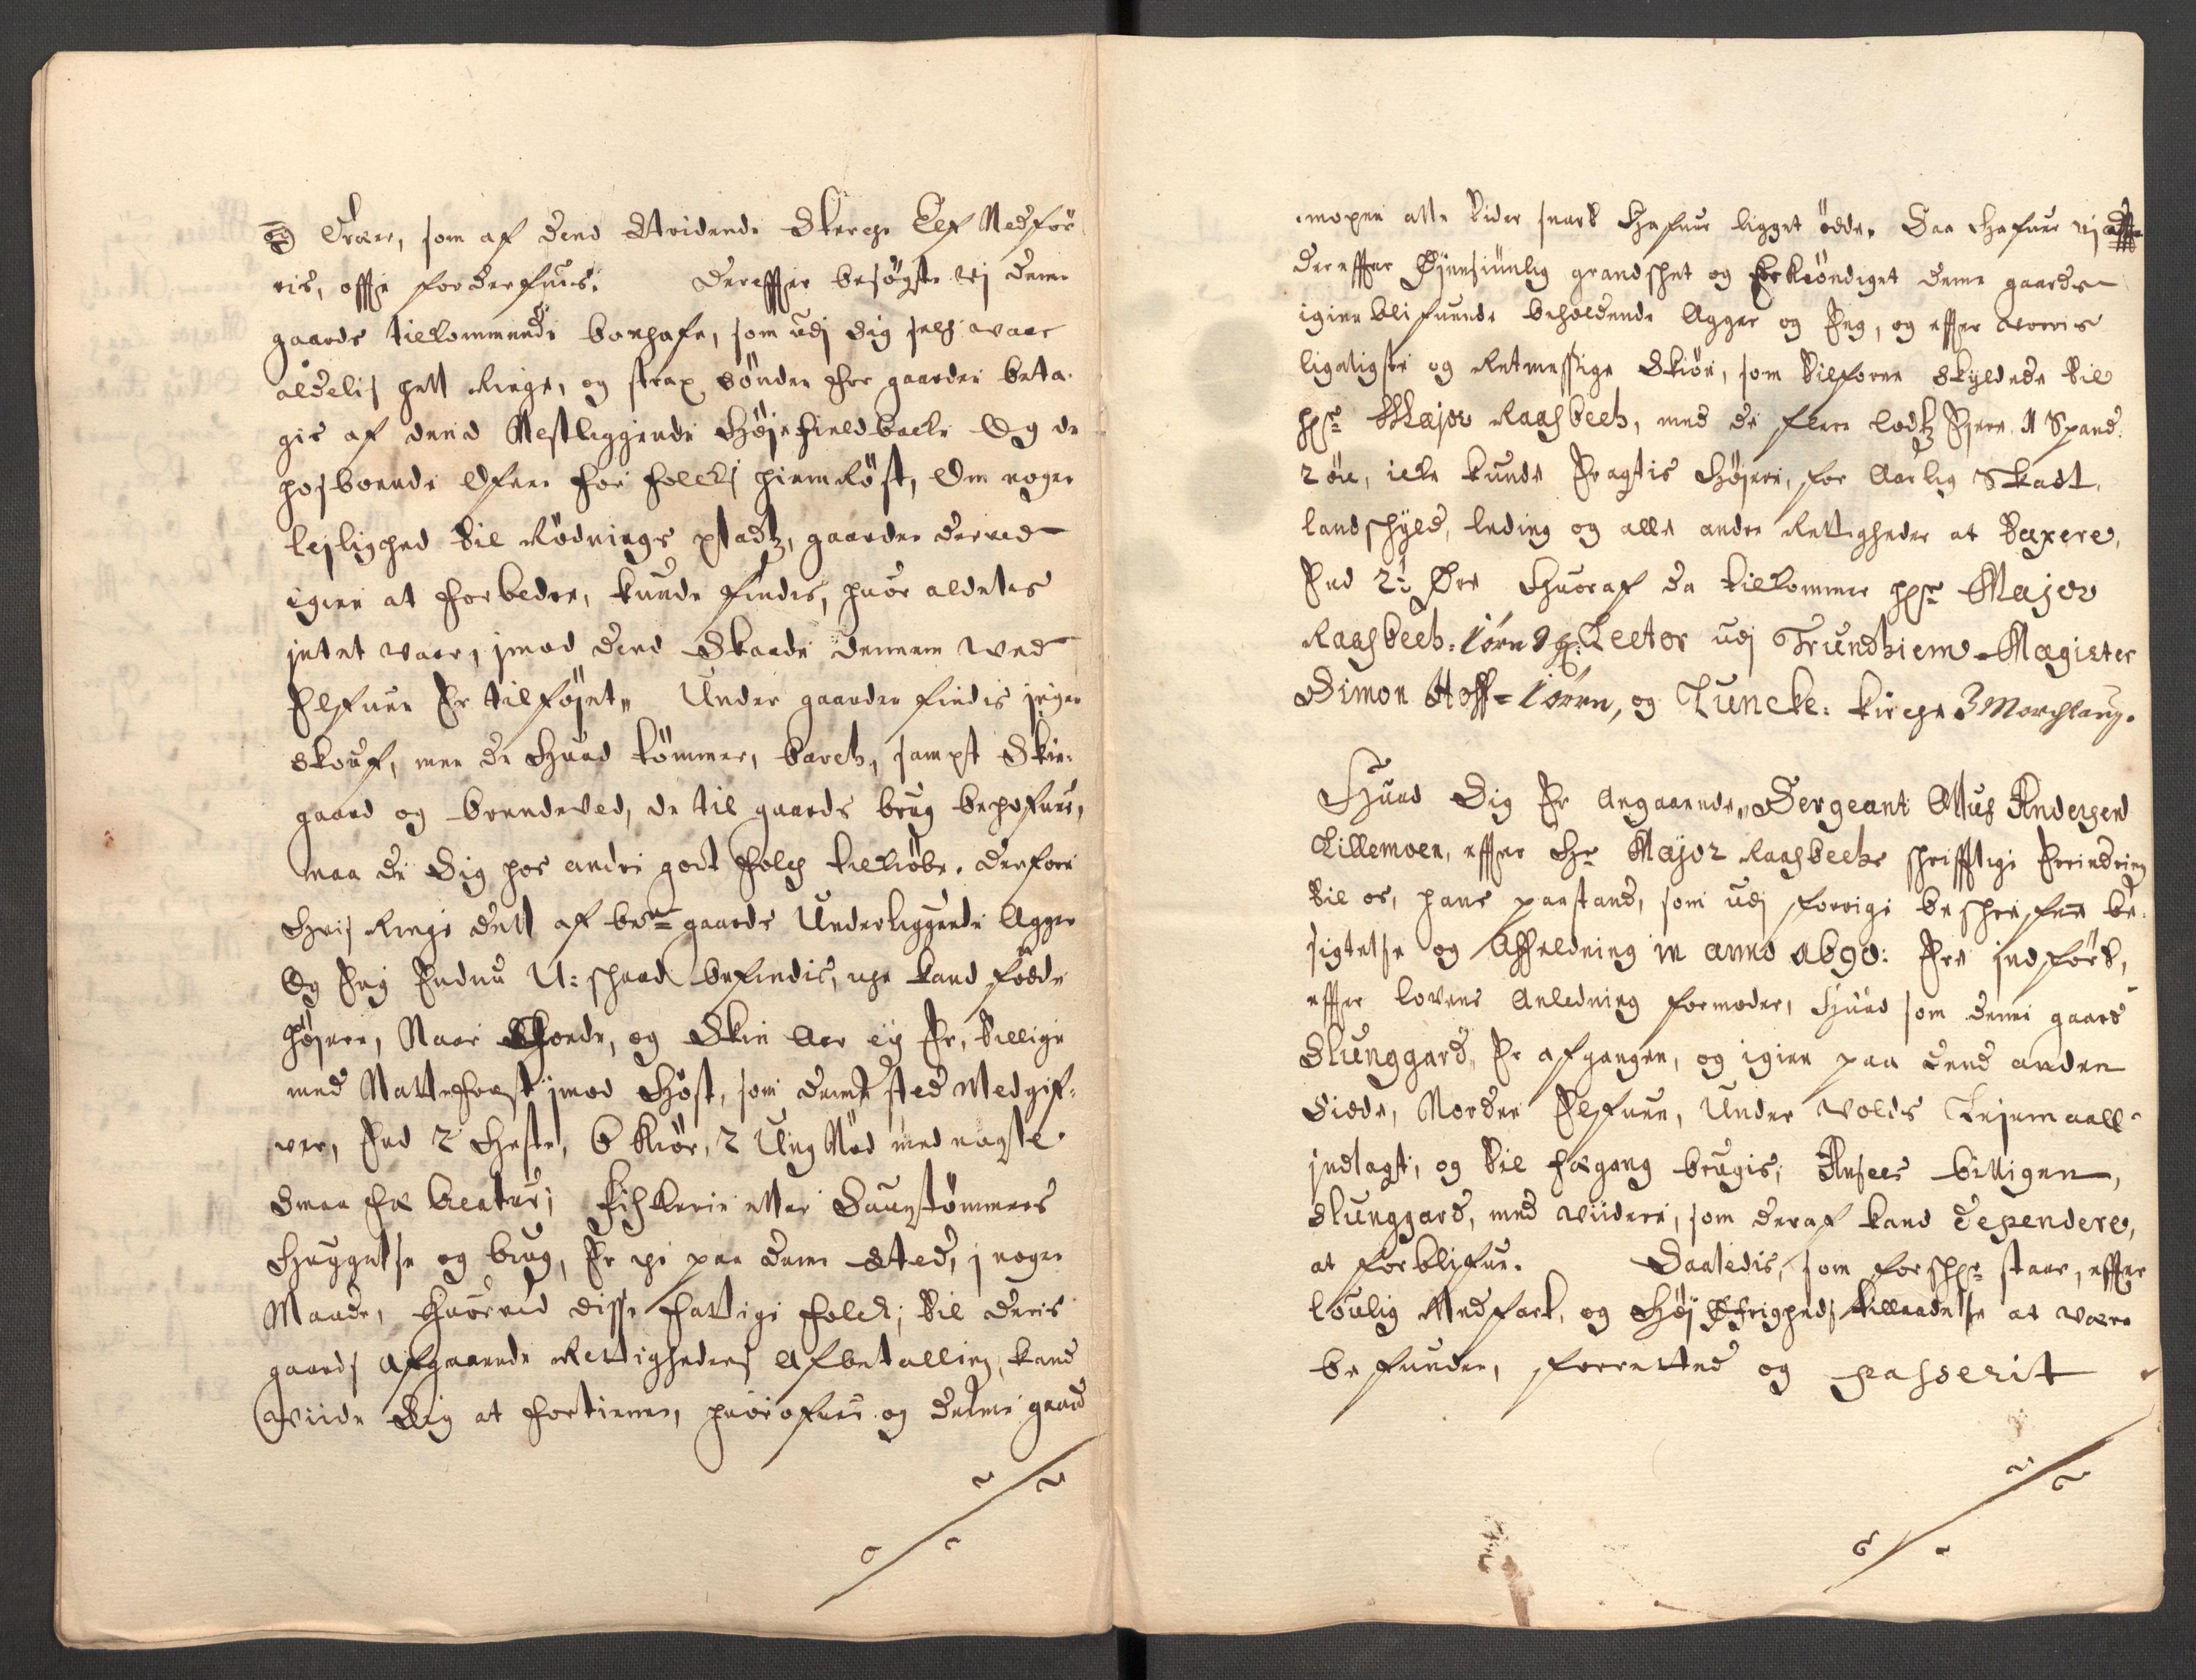 og Træer, som af dend Stridende Sterche Elf Nedfør
ris, offte forderfues. Derefter besøgte vj denne
gaards tilkommende bouhafe, som udj sig self waar
aldelis gett Ringe, og strax sønden for gaarden beta-
gis af dend Nestliggende Høje fieldbacke Og de
hosboende Ofuer for folckis hiemkøst, Om nogen
lejlighed til Rødnings pladtz, gaarden derved
igien at forbedre, kunde findes, huor aldeles
jntet waar, jmod dend Skaade dennem wed
Elfuen Er tilføjet. Under gaarden findis jngen
skouf, men de Huad tømmer, barch, sampt Skie-
gaard og brendeved, de til gaards brug behøfuer,
maa de Sig hos andre godt folch tilkiøbe. derfore
Huis Ringe dell af be.te gaards Underliggende Agger
Og Eng Endnu U-skaad befindis, eche kand føde
højere, Naar goede, og Skin Aar ej Er, tillige
med Matteforst imod Høst, som dette sted Medgif-
uer, End 2 Heste, 6 Kiør, 2 Ung Nød med nogle
Smaa fæ Creatur; fischerie etter Saugtømmers
Huggelse og brug, Er ej paa denne sted, j nogen
Maade, Huorved disse fattige folck; til deris
gaards Afgaaende Rettigheders Afbetalling, kand
wiide Sig at fortienne, huorofuer og denne gaard
mexen alle tider snart Hafuer ligget øde. Saa Hafuer vj
derefter Øjensiunlig grandschet og Erkyndiget denne gaards
igien blifuende beholdende Agger og Eng, og efter vorris
ligeligste og Retmessige Skiøn, som tilforne skyldede til
hr. Major Raasbech, med de flere lodtz Ejere 1 Spand
2 øre, icke kunde Eragtis Højere, for Aarlig Skadt,
landschyld, leding og alle andre Rettigheder at Taxere,
End 2½ Øre Huoraf da tilkommer hr. Major
Raasbech: 1 øre Lector udj Trundhiem Magister
Simon Hoff = 1 øre, og Luncke: kirche 3 Marchlaug.
Huad Sig Er Angaaende, Sergeant Oluf Andersen
Lillemoen, efter Hr. Major Raasbechs schrifftlige Erindring
til os, hans paastand, som udj forrige beschrefne be-
sigtelse og Affeldning in anno 1690: Ere jndført,
efter lovens Anledning formoder, Huad som denne gaard
Slunggard, Er afgangen, og igien paa dend anden
Siide, Norden Elfuen, Under Volds Lejemaall
jndlagt, og til fægang brugis, Ansees billigen,
Slunggard, med widere, som deraf kand dependere,
at forblifue. Saaledis, som forschr. staar, efter
loulig Medfart, og Høj Øfrigheds tilladelse at være
befunden, forretted og passerit